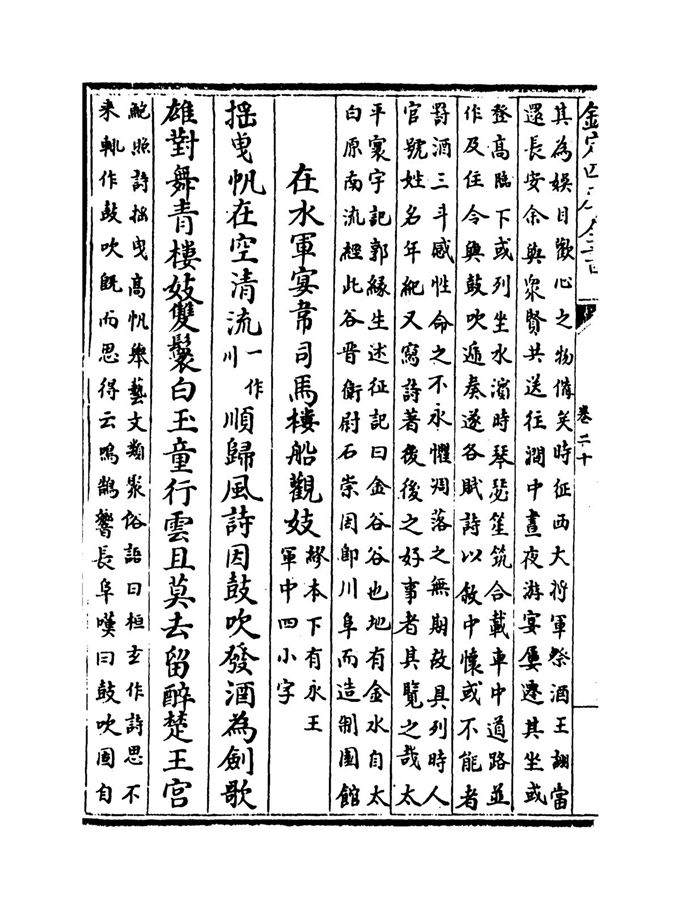 欽定四庫全書
卷二十
其為娛目歡心之物備矣時征西大將軍祭酒王詡當
還長安余與衆賢共送往澗中晝夜游宴屢遷其坐或
登高臨下或列坐水濱時琴瑟笙筑合載車中道路並
作及住令與鼓吹遞奏遂各賦詩以敘中懷或不能者
罸酒三斗感性命之不永懼凋落之無期故具列時人
官號姓名年紀又寫詩著後後之好事者其覽之哉太
平寰宇記郭緣生述征記曰金谷谷也地有金水自太
白原南流經此谷晋衛尉石崇因即川阜而造制園館
在水軍宴韋司馬樓船觀妓
繆本下有永王
軍中四小字
摇曳帆在空清流
一作
川
順歸風詩因鼓吹發酒為劍歌
雄對舞青樓妓雙鬟白玉童行雲且莫去留醉楚王宫
鮑照詩摇曳高帆舉藝文類聚俗語曰桓玄作詩思不
来輒作鼓吹既而思得云鳴鵠響長阜嘆曰鼓吹固自